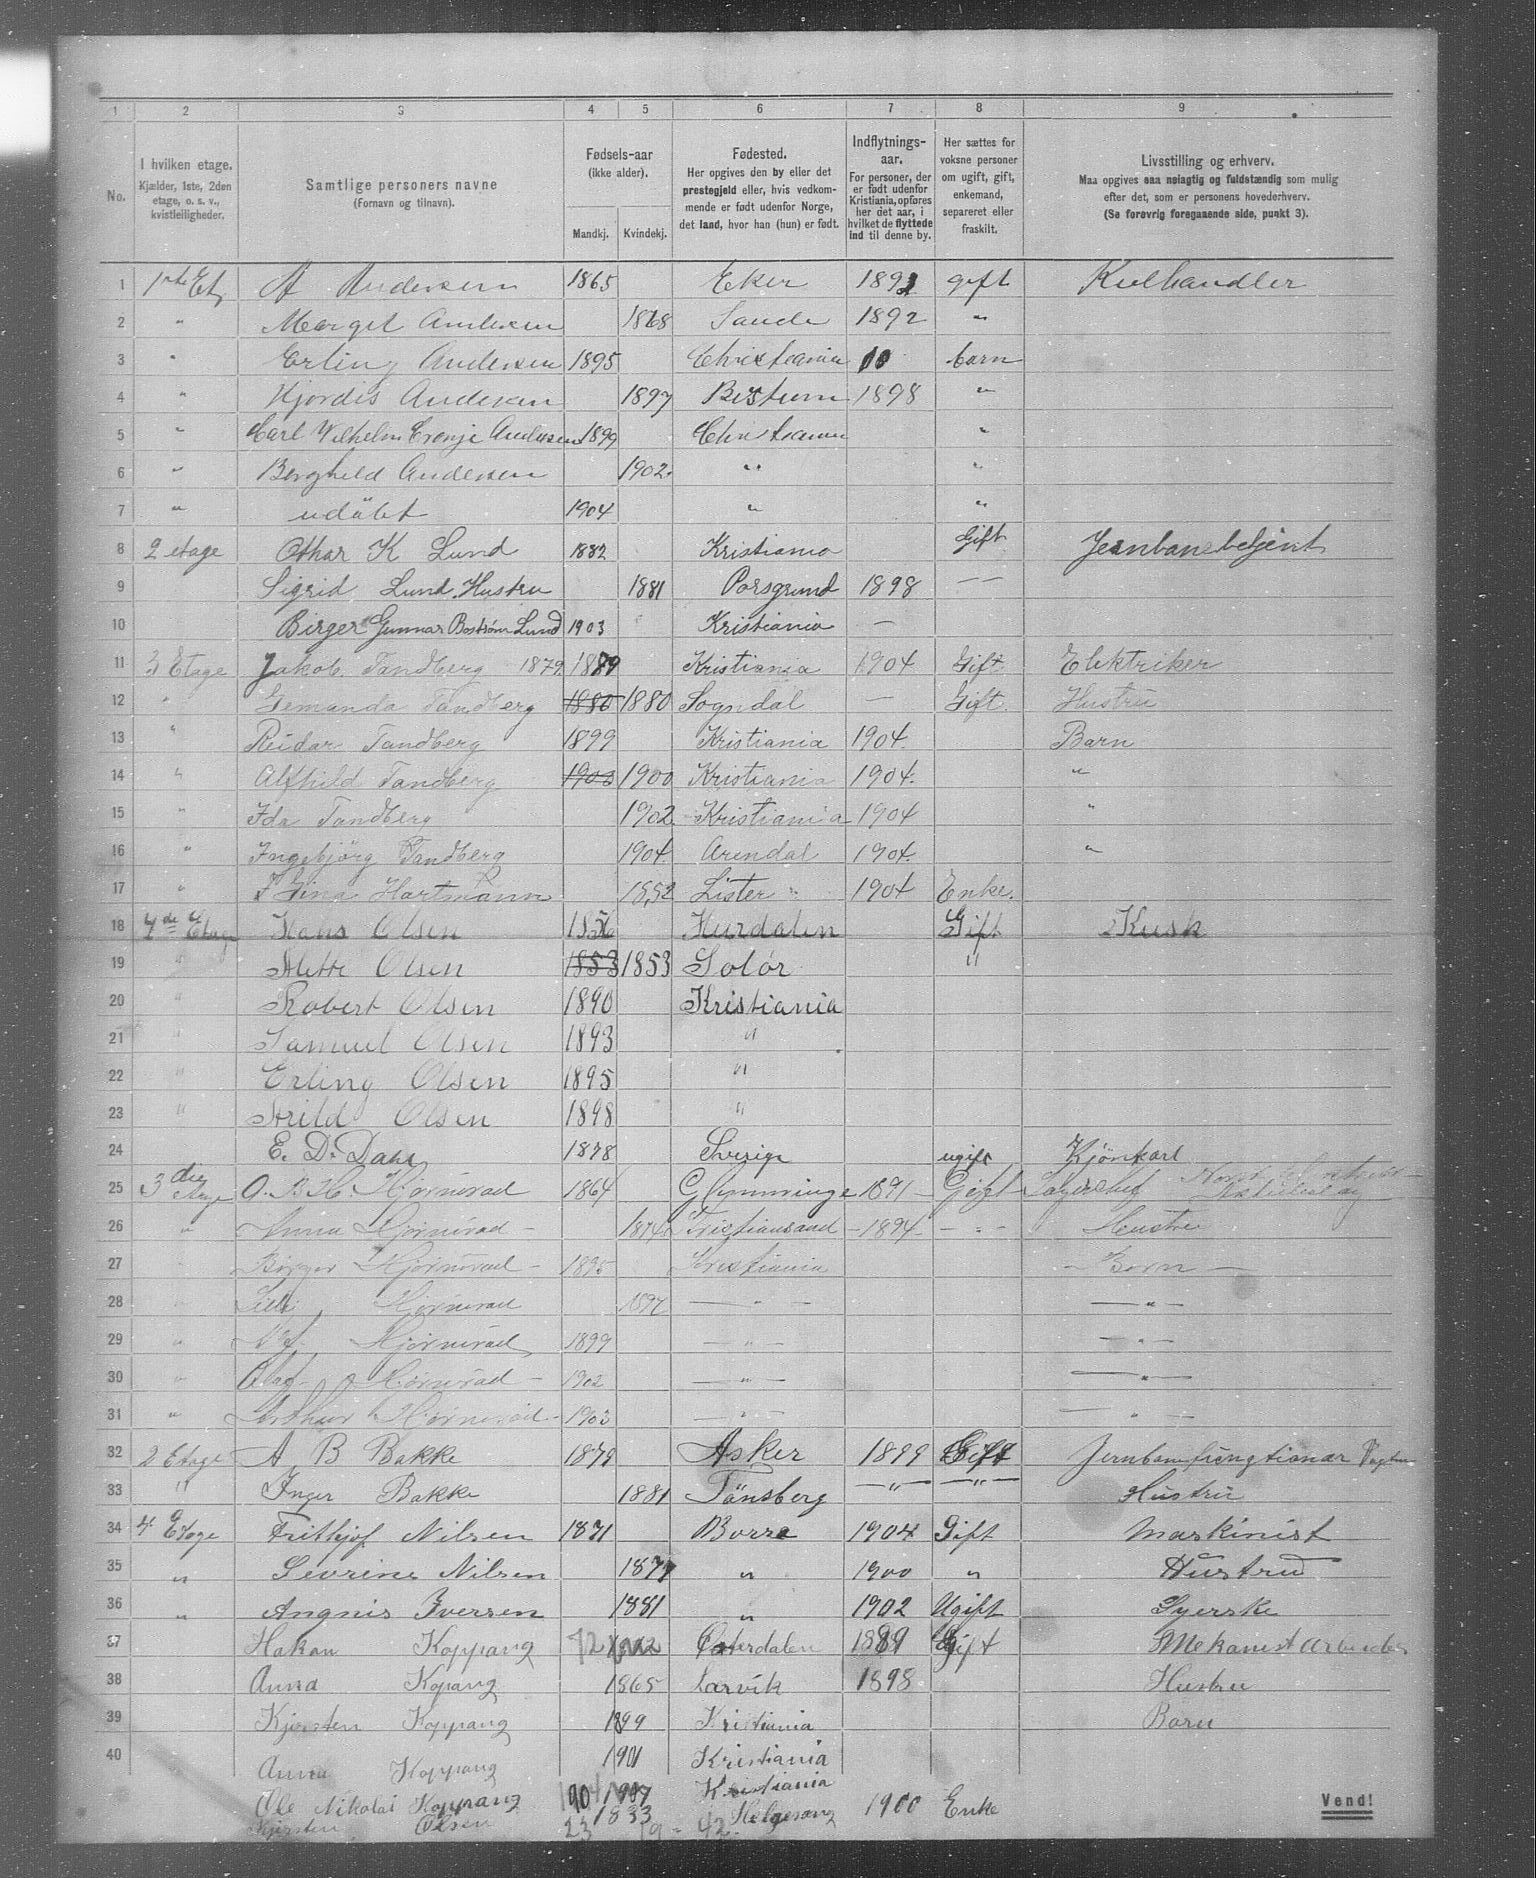 1 2 3 4 5 6 7 8 9
No.
I hvilken etage.
Kjælder, 1ste, 2den
etage, o. s. v.,
kvistleiligheder.
Samtlige personers navne
(Fornavn og tilnavn).
Fødsels-aar
(ikke alder).
Mandkj. Kvindekj.
Fødested.
Her opgives den by eller det
prestegjeld eller, hvis vedkom-
mende er født udenfor Norge,
det land, hvor han (hun) er født.
Indflytnings-
aar.
For personer, der
er født udenfor
Kristiania, opføres
her det aar, i
hvilket de flyttede
ind til denne by.
Her sættes for
voksne personer
om ugift, gift,
enkemand,
separeret eller
fraskilt.
Livsstilling og erhverv.
Maa opgives saa nøiagtig og fuldstændig som mulig
efter det, som er personens hovederhverv.
(Se forøvrig foregaaende side, punkt 3).
1 1ste Et. A Andersen 1865 Eker 1892 gift Kulhandler
2 " Margit Andersen 1868 Sande 1892 "
3 " Erling Andersen 1895 Christiania barn
4 " Hjordis Andersen 1897 Bestum 1898 "
5 " Carl Wilhelm Cronje Andersen 1899 Christiania "
6 " Borghild Andersen 1902 " "
7 " udöbt 1904 " "
8 2 etage Othar K Lund 1882 Kristiania Gift Jernbanebetjent
9 Sigrid Lund. Hustru 1881 Porsgrund 1898 — —
10 Birger Gunnar Boström Lund 1903 Kristiania —
11 3 Etage Jakob Tandberg 1879 1889 Kristiania 1904 Gift Elektriker
12 " Gemanda Tandberg 1880 1880 Sogndal — Gift. Hustru
13 " Reidar Tandberg 1899 Kristiania 1904. Barn
14 " Alfhild Tandberg 1900 1900 Kristiania 1904. "
15 " Ida Tandberg 1902 Kristiania 1904 "
16 " Ingebjörg Tandberg 1904 Arendal 1904. "
17 " Gina Hartmann 1852 Lister 1904 Enke.
18 4de Etage Hans Olsen 1856 Hurdalen Gift Kusk
19 " Mette Olsen 1853 1853 Solör "
20 " Robert Olsen 1890 Kristiania
21 " Samuel Olsen 1893 "
22 " Erling Olsen 1895 "
23 " Arild Olsen 1898 "
24 E. D. Dahl 1878 Sverige ugift Kjörekarl
25 3die Etage O. B. H. Hjørnevad 1864 Glemminge 1891 Gift Lagerchef
26 " Anna Hjørnevad 1874 Kristiansand 1894 — " — Hustru
27 Birger Hjørnevad 1895 Kristiania Børn
28 " Lilli Hjørnevad 1897 — " — — " —
29 " Hjørnevad 1899 — " — — " —
30 " Olaf Hjørnevad 1902 — " — — " —
31 " Arthur Hjørnevad 1903 — " — — " —
32 2 Etage A B Bakke 1879 Asker 1899 Gift Jernbanefungtionær
33 " Inger Bakke 1881 Tönsberg — " — — " — Hustru
34 4 Etage Frithjof Nilsen 1871 Borre 1904 Gift Maskinist
35 " Sevrine Nilsen 1877 " 1900 " Hustru
36 " Angnis Iversen 1881 " 1902 Ugift Syerske
37 Hakon Koppang Østerdalen 1889 Gift Mekanist Arbeider
38 Anna Kopang 1865 Larvik 1898 Hustru
39 Kjersten Koppang 1899 Kristiania Barn
40 Anna Koppang 1901 Kristiania
Ole Nikolai Koppang 1904 Kristiania
Kjersten Olsen 1833 Helgesang 1900 Enke
23 19 - 42.
Vend!